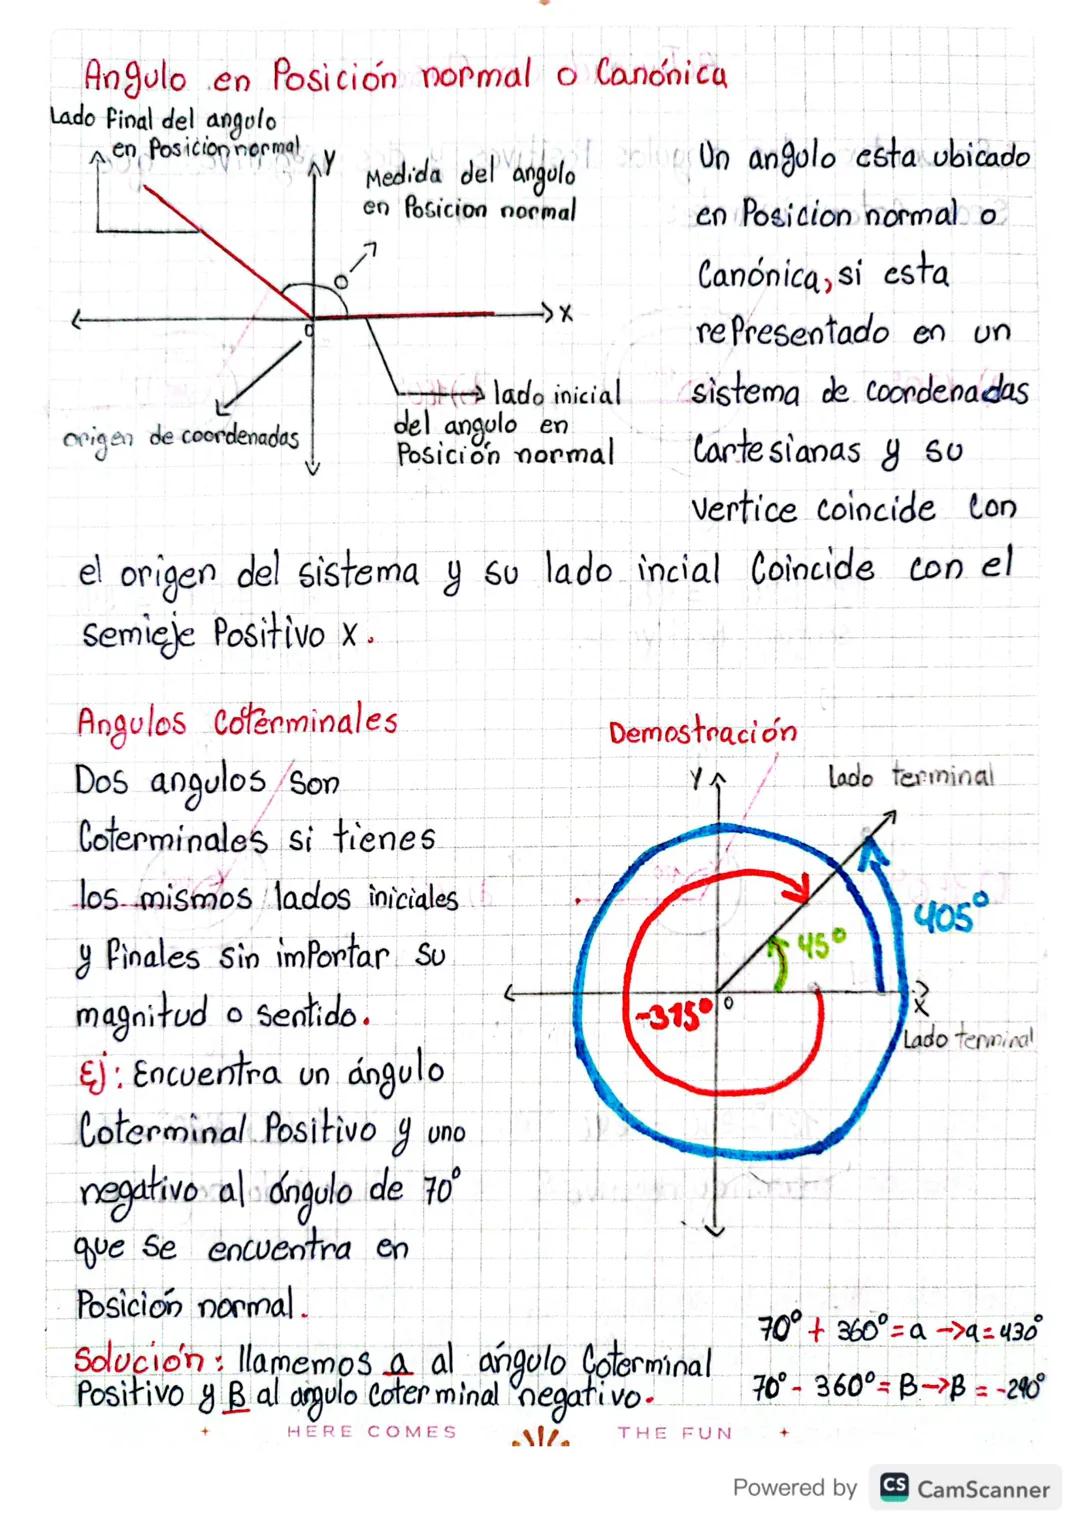 Angulo en Posición normal o Canónica
Lado Final del angulo
en Posicion normal
Y
Medida del angulo
en Posicion normal
X
0
lado inicial
del angulo en
Posición normal
origen de coordenadas
Un angulo esta ubicado
en Posicion normal o
Canónica, si esta
rePresentado en un
sistema de coordenadas
Cartesianas y su
vertice coincide con
el origen del sistema y su lado incial Coincide con el
semieje Positivo x.
Angulos Coterminales
Dos angulos son
Coterminales si tienes
los mismos lados iniciales
y Finales sin imPortar su
magnitud o sentido.
Ej: Encuentra un ángulo
Coterminal Positivo y uno
negativo al ángulo de 70°
que se encuentra en
Posición normal.
Demostración
Y
Lado terminal
405°
45°
-315°
0
X
Lado terminal
Solución: llamemos a al angulo Coterminal
Positivo y B al angulo Coterminal negativo.
70° + 360° = a → a = 430°
70° - 360° = B → B = -290°
HERE COMES THE FUN
Powered by CS CamScanner